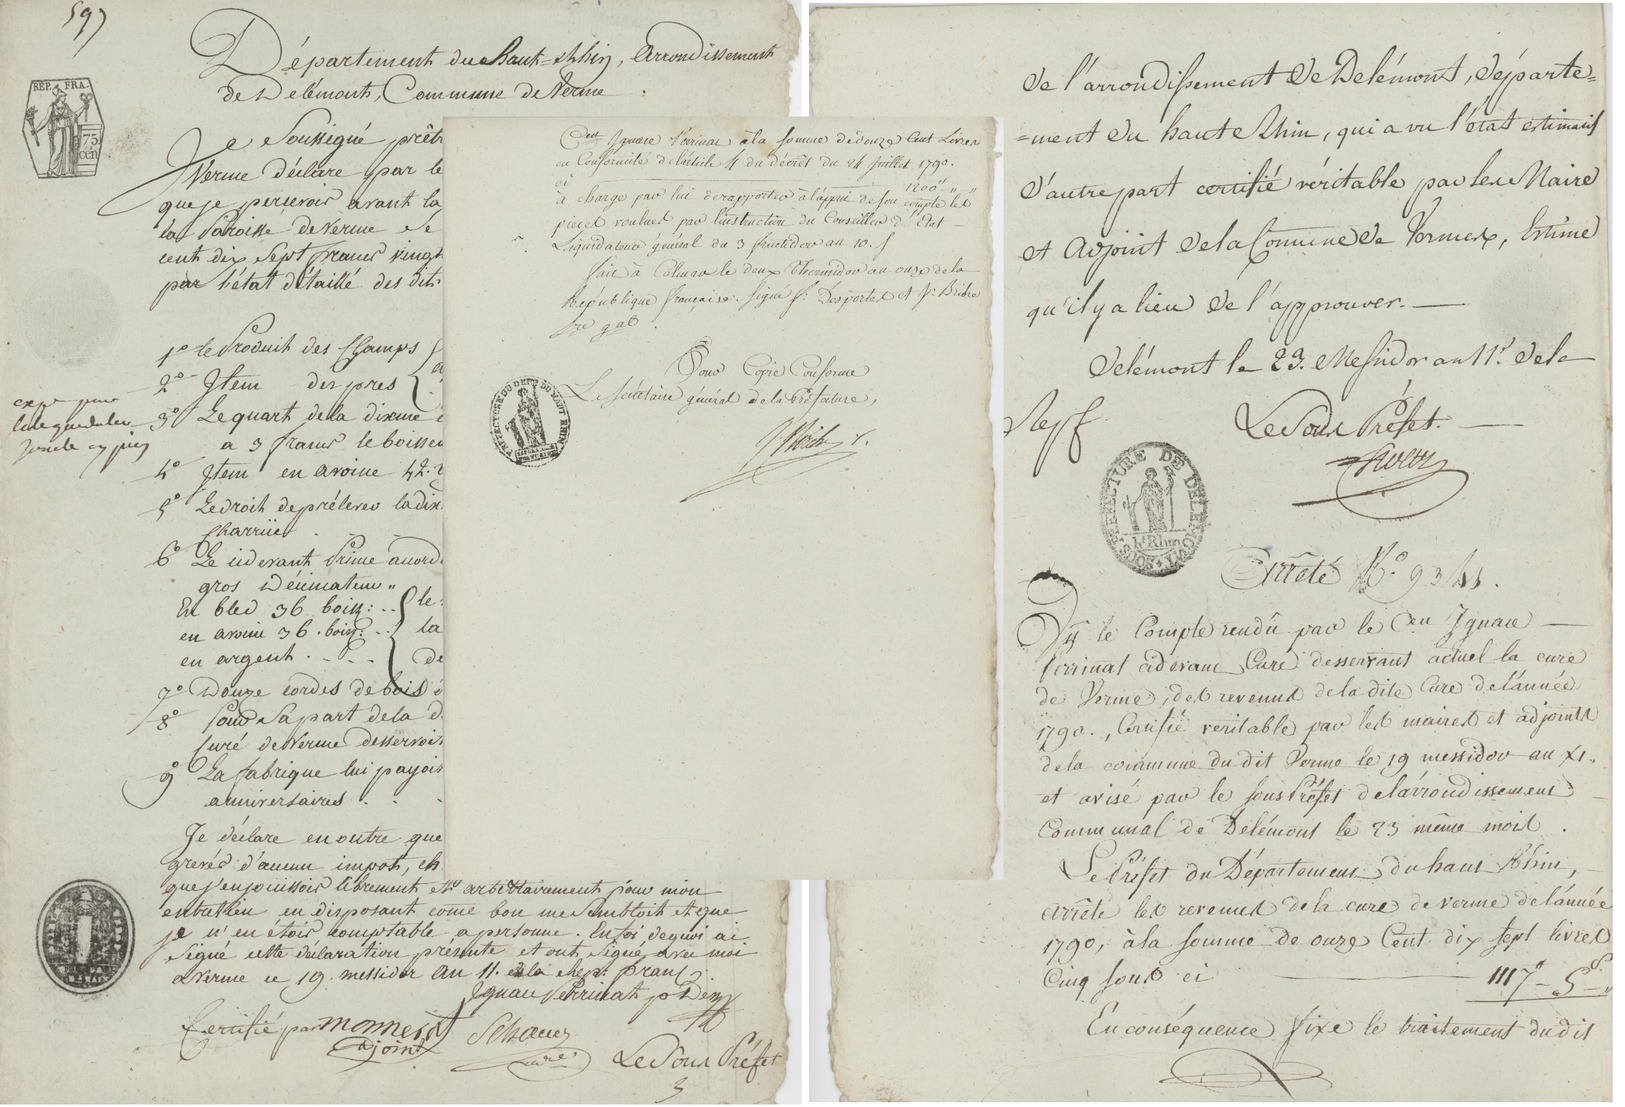 597
Département du haut=Rhin, Arrondissement
de Delémont, Commune de Verme.
REP. FRA.
75
cen
Je Soussigné prêt
Verme déclare par le
que je percevois avant la
la Paroisse de Verme se
cent dix Sept francs vingt
par l'état détaillé des dits
1º le Produit des Champs
2º Item des pres
3º Le quart de la dixme
a 3 francs le boissea
4º Item en avoine 42.
5º Le droit de prélever la dix
charrüe
6º Le cidevant Prince accord
gros Décimateur
En bled 36 boiss: ..
en avoine 36. boiss. ..
en argent . . . .
le
la
de
7º Douze cordes de bois
8º Pour Sa part de la d
curé de Verme desservoit
9º La fabrique lui payoit
anniversaires . .
Je déclare en outre que
grevés d'aucun impost, ch
que j'en jouissois librement et arbitrairement pour mon
entretien en disposant come bon me Sembloit et que
je n'en étois comptable a personne. En foi de quoi ai
signé cette déclaration présente et ont signé avec moi
a Verme ce 19. messidor an 11. de la rep: franç.
Ignace Verrinat p
Certifié par monnein
adjoint
Schaner
maire
Le Sous Préfet
Cen Ignace Verrinat à la somme de douze Cent Livres
en Conformité de l'article 4 du décret du 24 Juillet 1790.
ci 1200# " "
à charge par lui de rapporter à l'appui de son compte les
pieces voulues par l'instruction du Conseiller d'Etat
Liquidateur général du 3 fructidor an 10. /
fait à Colmar le deux Thermidor an onze de la
République française. Signé f: Desportes et
sre gal.
Pour Copie Conforme
Le Secrétaire général de la Préfecture,
PREFECTURE DU DEPT DU HAUT RHIN
de l'arrondissement de Delémont, départe=
=ment du haut Rhin, qui a vu l'état estimatif
d'autre part certifié véritable par les Maire
et Adjoint de la Comune de Vermes, Estime
qu'il y a lieu de l'approuver. —
Delémont le 23. Messidor an 11e de la
Rep f.
Le Sous Préfet. —
SOUS-PREFECTURE DE DELEMONT
Ht Rhin
Arrêté No 9341.
Vu le Compte rendû par le Cen Ignace —
Verrinat cidevant Curé desservant actuel la cure
de Verme, des revenus de la dite Cure de l'année
1790., Certifié veritable par les maires et adjoints
de la commune du dit Verme le 19 messidor an XI.,
et avisé par le sous Préfet de l'arrondissement
Communal de Delémont le 23 même mois.
Le Préfet du Département du haut Rhin, —
arrête les revenus de la cure de verme de l'année
1790, à la somme de onze Cent dix sept livres
Cinq sous ci — 1117# — 5s — "
En conséquence fixe le traitement du dit